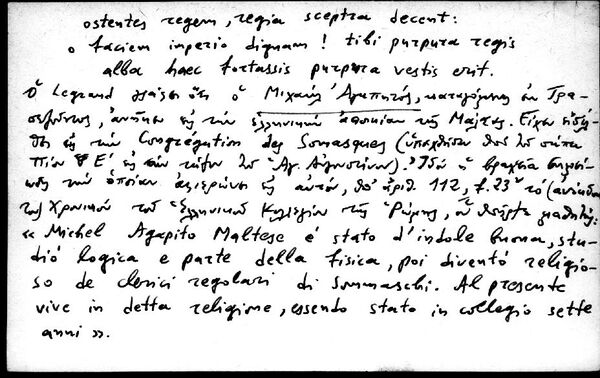 ostentes regem, regia sceptra decent:
o faciem imperio dignam! tibi purpura regis
alba haec fortassis purpura vestis erit.
Ὁ Legrand γράφει ὅτι ὁ Μιχαὴλ Ἀγαπητός, καταγόμενος ἐκ Τρα-
πεζοῦντος, ἀνῆκεν εἰς τὴν ἑλληνικὴν ἀποικίαν τῆς Μάλτας. Εἶχεν εἰσέλ-
θει εἰς τὴν Congrégation des Somasques (
εἰς τὴν τάξιν τοῦ Ἁγ. Αὐγουστίνου). Ἰδοὺ ἡ βραχεῖα
τὴν ὁποίαν ἀφιερώνει εἰς αὐτόν, ὑπ' ἀριθ. 112, f. 23ᵛ τὸ (ἀνέκδοτον
Χρονικὸν τοῦ Ἑλληνικοῦ Κολλεγίου τῆς Ῥώμης, οὗ ὑπῆρξε μαθητής:
« Michel Agapito Maltese é stato d'indole buona, stu-
dió logica e parte della fisica, poi diventó religio-
so de clerici regolari di Sommaschi. Al presente
vive in detta religione, essendo stato in collegio sette
anni ».